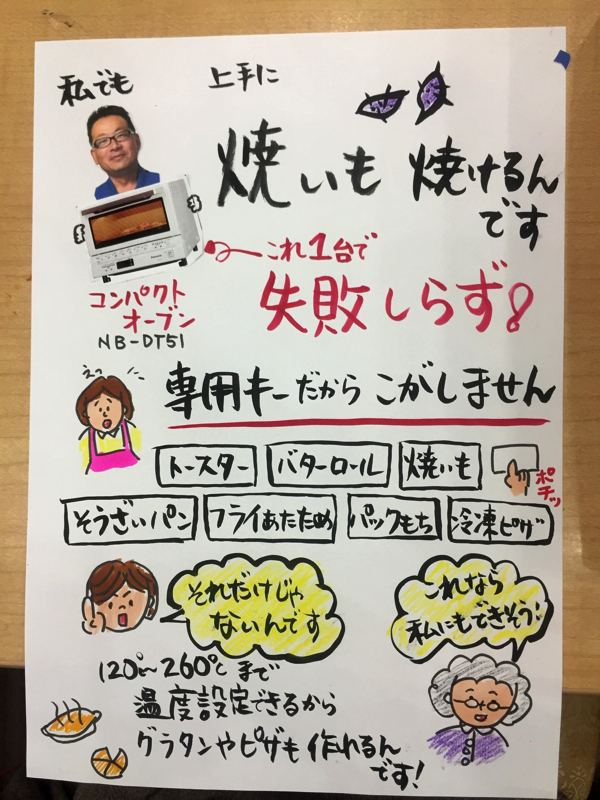 私でも 上手に
焼いも 焼けるん
です
これ1台で
失敗しらず!
コンパクト
オーブン
NB-DT51
えっ
専用キーだから こがしません
トースター バターロール 焼いも
ポチッ
そうざいパン フライあたため パックもち 冷凍ピザ
それだけじゃ
ないんです
これなら
私にもできそう!
120℃~260℃まで
温度設定できるから
グラタンやピザも作れるん
です!